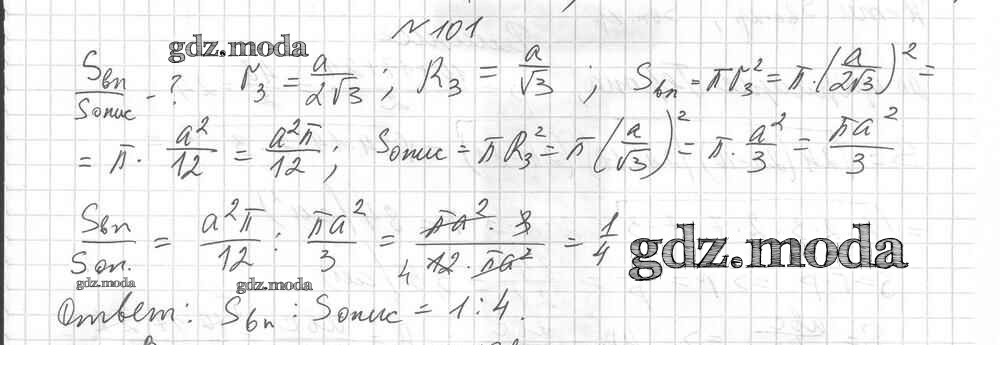 N 101
gdz.moda
Sвп/Sопис - ? r₃ = a/2√3 ; R₃ = a/√3 ; Sвп = πr₃² = π·(a/2√3)² =
= π · a²/12 = a²π/12 ; Sопис = πR₃² = π(a/√3)² = π · a²/3 = πa²/3
Sвп/Sоп. = a²π/12 : πa²/3 = πa² · 3/12 · πa² 4 = 1/4
gdz.moda
gdz.moda gdz.moda
Ответ: Sвп : Sопис = 1 : 4.